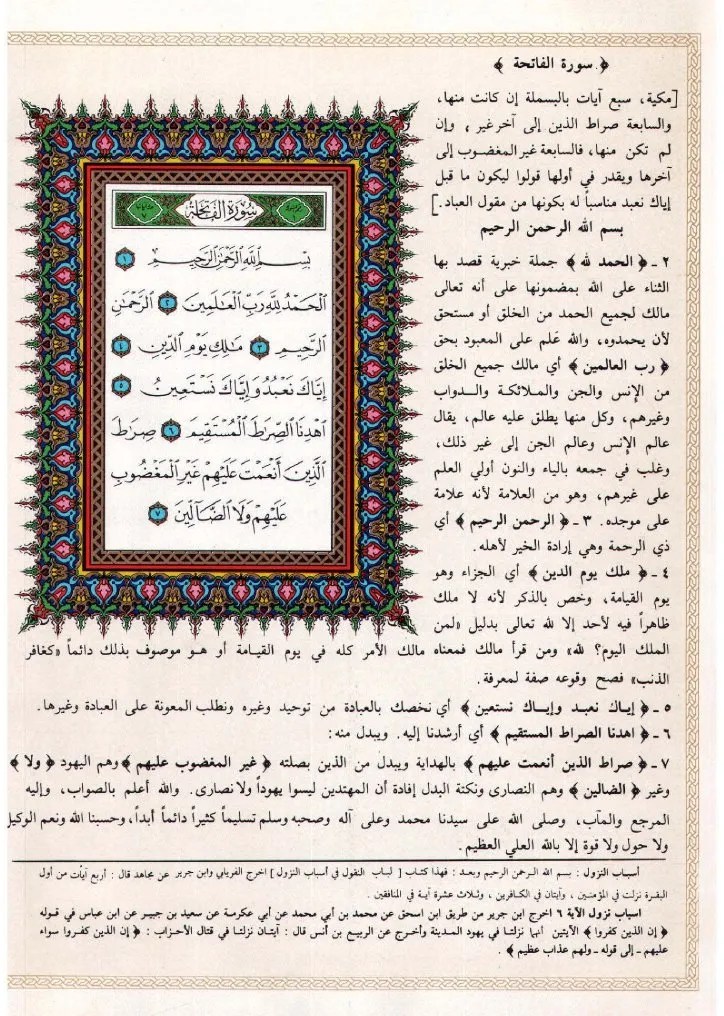 ﴿ سورة الفاتحة ﴾
[مكية، سبع آيات بالبسملة إن كانت منها،
والسابعة صراط الذين إلى آخر غير، وإن
لم تكن منها، فالسابعة غير المغضوب إلى
آخرها ويقدر في أولها قولوا ليكون ما قبل
إياك نعبد مناسباً له بكونها من مقول العباد.]
بسم الله الرحمن الرحيم
٢ ـ ﴿ الحمد لله ﴾ جملة خبرية قصد بها
الثناء على الله بمضمونها على أنه تعالى
مالك لجميع الحمد من الخلق أو مستحق
لأن يحمدوه، والله عَلم على المعبود بحق
﴿ رب العالمين ﴾ أي مالك جميع الخلق
من الإنس والجن والملائكة والدواب
وغيرهم، وكل منها يطلق عليه عالم، يقال
عالم الإنس وعالم الجن إلى غير ذلك،
وغلب في جمعه بالياء والنون أولي العلم
على غيرهم، وهو من العلامة لأنه علامة
على موجده. ٣ ـ ﴿ الرحمن الرحيم ﴾ أي
ذي الرحمة وهي إرادة الخير لأهله.
٤ ـ ﴿ ملك يوم الدين ﴾ أي الجزاء وهو
يوم القيامة، وخص بالذكر لأنه لا ملك
ظاهراً فيه لأحد إلا لله تعالى بدليل «لمن
الملك اليوم؟ لله» ومن قرأ مالك فمعناه مالك الأمر كله في يوم القيامة أو هو موصوف بذلك دائماً «كغافر
الذنب» فصح وقوعه صفة لمعرفة.
٥ ـ ﴿ إياك نعبد وإياك نستعين ﴾ أي نخصك بالعبادة من توحيد وغيره ونطلب المعونة على العبادة وغيرها.
٦ ـ ﴿ اهدنا الصراط المستقيم ﴾ أي أرشدنا إليه. ويبدل منه:
٧ ـ ﴿ صراط الذين أنعمت عليهم ﴾ بالهداية ويبدل من الذين بصلته ﴿ غير المغضوب عليهم ﴾ وهم اليهود ﴿ ولا ﴾
وغير ﴿ الضالين ﴾ وهم النصارى ونكتة البدل إفادة أن المهتدين ليسوا يهوداً ولا نصارى. والله أعلم بالصواب، وإليه
المرجع والمآب، وصلى الله على سيدنا محمد وعلى آله وصحبه وسلم تسليماً كثيراً دائماً أبداً، وحسبنا الله ونعم الوكيل
ولا حول ولا قوة إلا بالله العلي العظيم.
سُورَةُ الفَاتِحَةِ
بِسْمِ اللَّهِ الرَّحْمَٰنِ الرَّحِيمِ ١
الْحَمْدُ لِلَّهِ رَبِّ الْعَالَمِينَ ٢ الرَّحْمَٰنِ
الرَّحِيمِ ٣ مَالِكِ يَوْمِ الدِّينِ ٤
إِيَّاكَ نَعْبُدُ وَإِيَّاكَ نَسْتَعِينُ ٥
اهْدِنَا الصِّرَاطَ الْمُسْتَقِيمَ ٦ صِرَاطَ
الَّذِينَ أَنْعَمْتَ عَلَيْهِمْ غَيْرِ الْمَغْضُوبِ
عَلَيْهِمْ وَلَا الضَّالِّينَ ٧
أسباب النزول : بسم الله الرحمن الرحيم وبعد : فهذا كتاب [ لباب النقول في أسباب النزول ] اخرج الفريابي وابن جرير عن مجاهد قال : أربع آيات من أول
البقرة نزلت في المؤمنين ، وآيتان في الكافرين ، وثلاث عشرة آية في المنافقين .
اسباب نزول الآية ٦ اخرج ابن جرير من طريق ابن اسحق عن محمد بن أبي محمد عن أبي عكرمة عن سعيد بن جبير عن ابن عباس في قوله
﴿ إن الذين كفروا ﴾ الآيتين أنهما نزلتا في يهود المدينة وأخرج عن الربيع بن أنس قال : آيتان نزلتا في قتال الأحزاب : ﴿ إن الذين كفروا سواء
عليهم ـ إلى قوله ـ ولهم عذاب عظيم ﴾ .